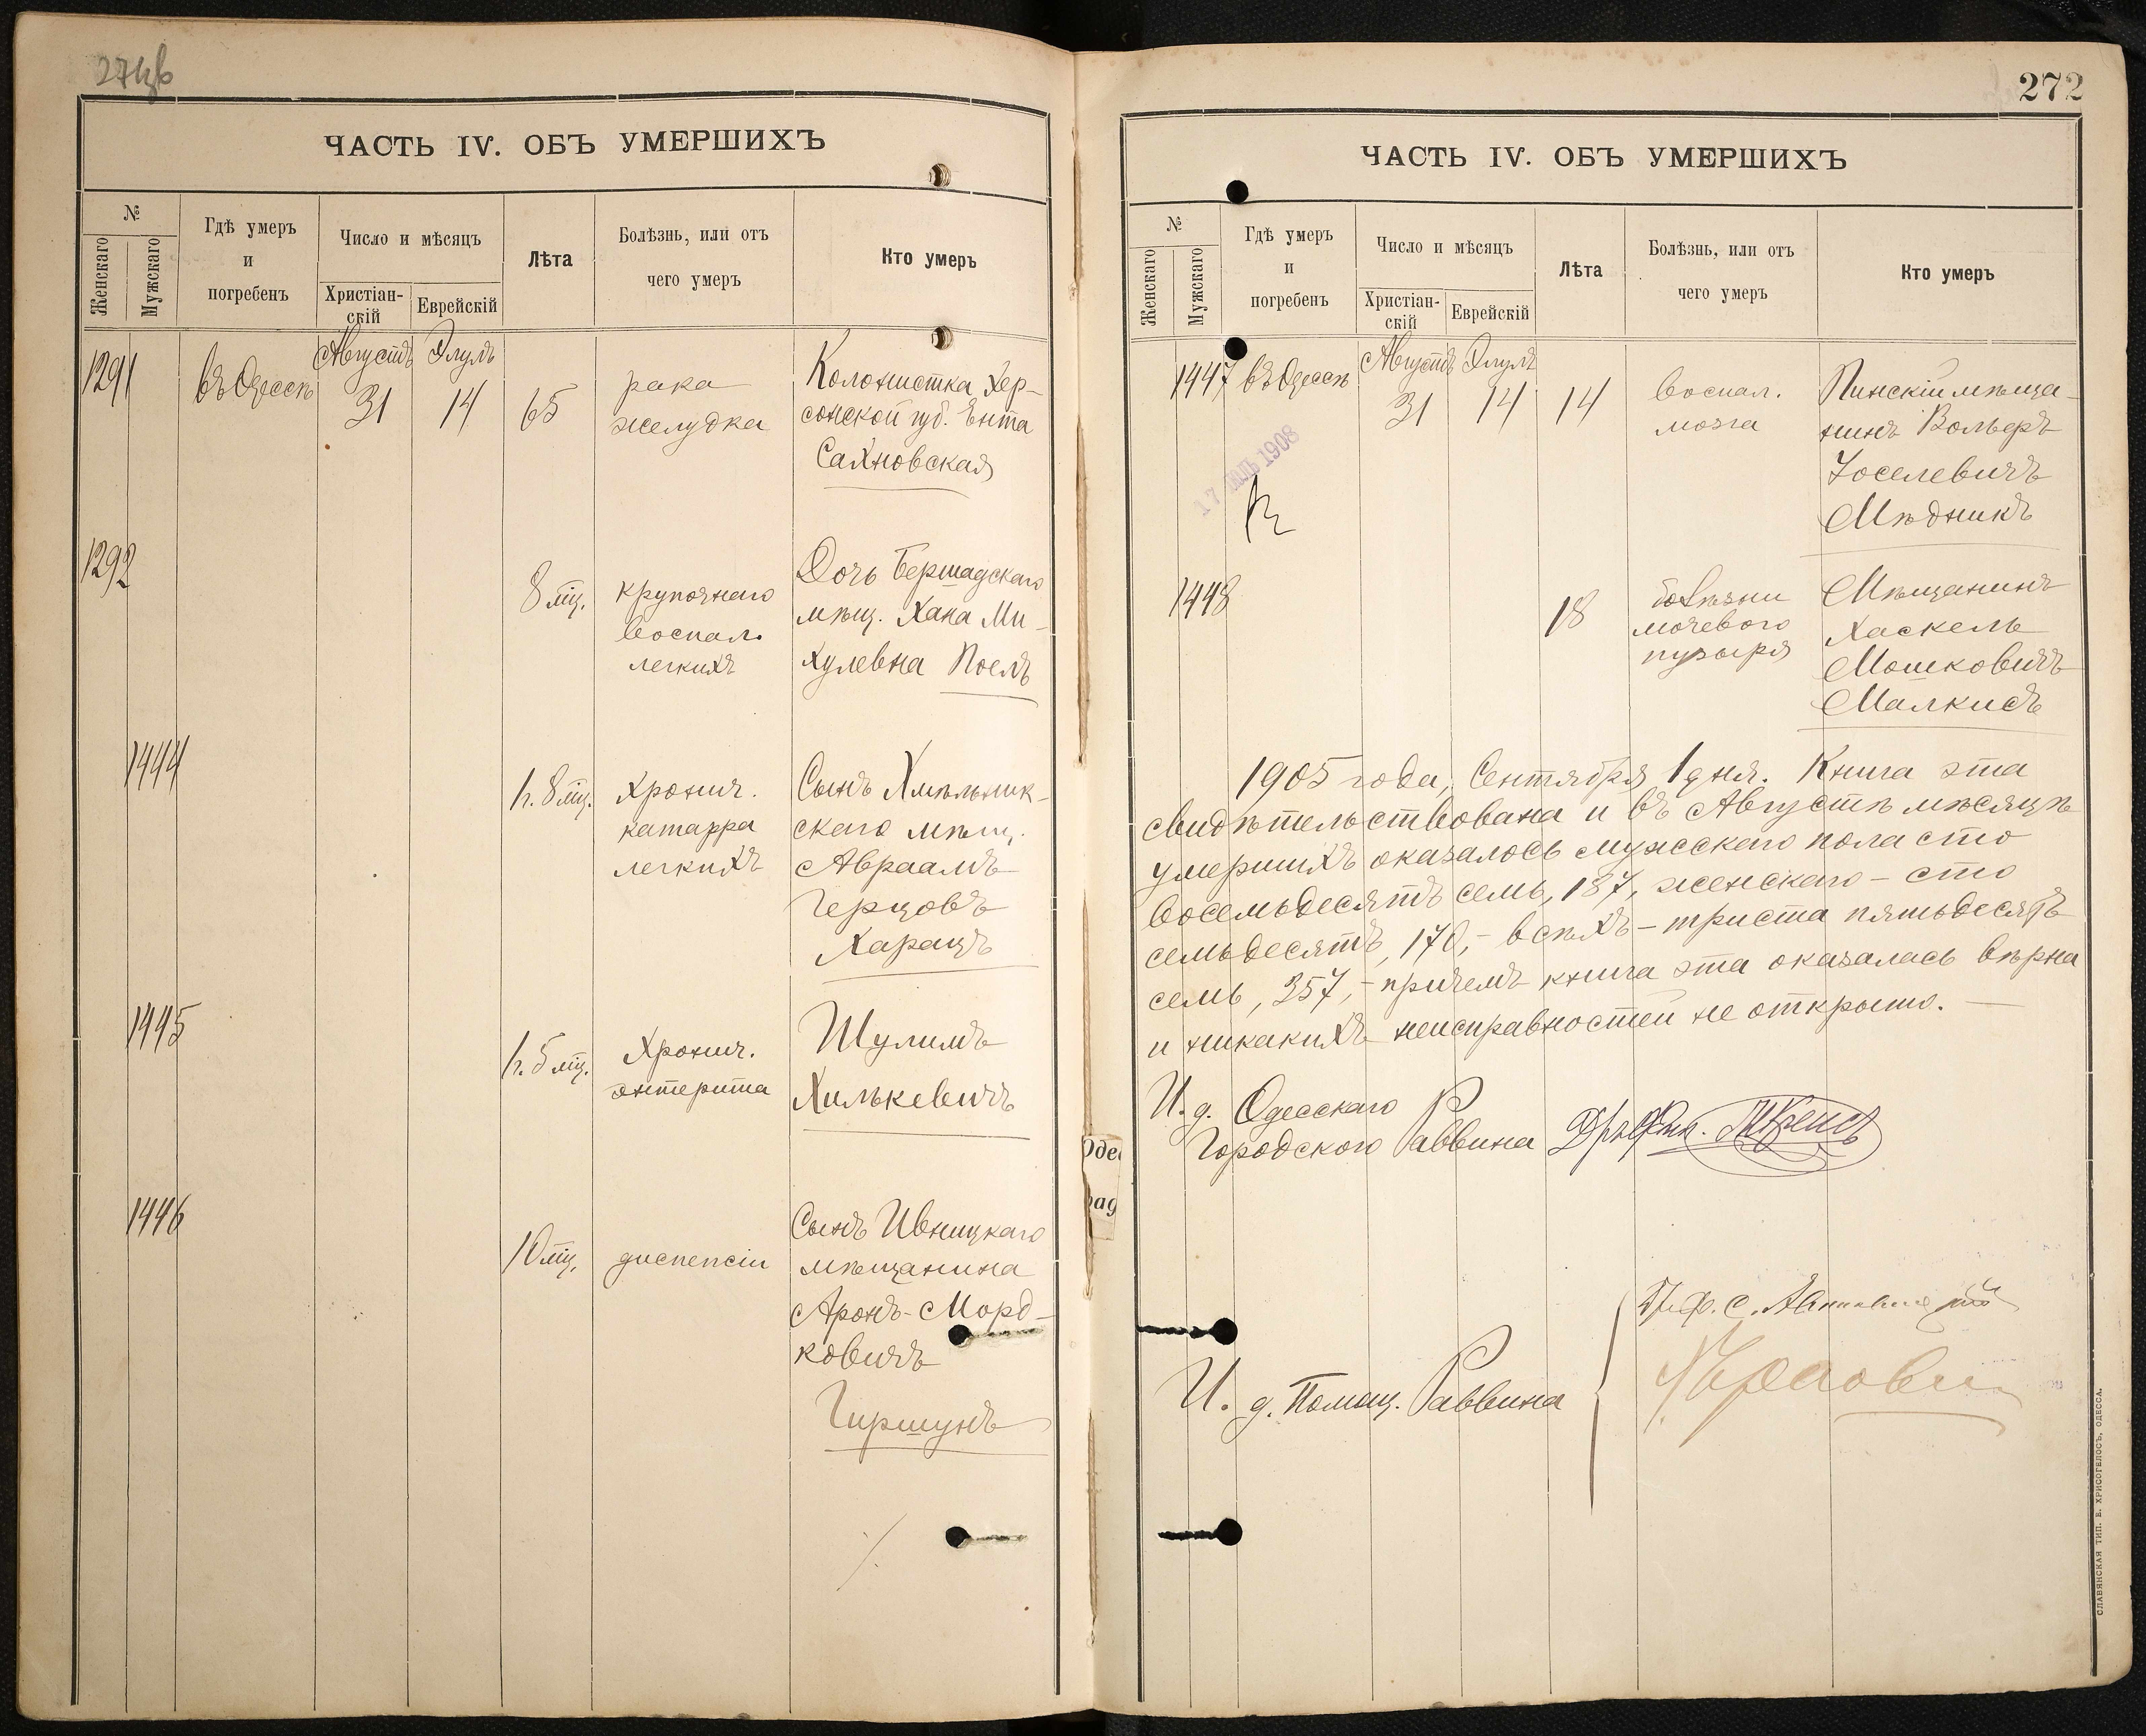 ЧАСТЬ IV. ОБЪ УМЕРШИХЪ
№
Женскаго
Мужскаго
Гдѣ умеръ
и
погребенъ
Число и мѣсяцъ
Христіан-
скій
Еврейскій
Лѣта
Болѣзнь, или отъ
чего умеръ
Кто умеръ
1291
въ Одессѣ
Августъ
31
Элулъ
14
65
рака
желудка
Колонистка Хер-
сонской губ. Ента
Сахновская
1292
8 мц.
крупознаго
воспал.
легкихъ
Дочь Бершадскаго
мѣщ. Хана Ми-
хулевна Поелъ
1444
1 г. 8 мц.
Хронич.
катарра
легкихъ
Сынъ Хмѣльник-
скаго мѣщ.
Авраамъ
Герцовъ
Харацъ
1445
1 г. 5 мц.
Хронич.
энтерита
Шулимъ
Хилькевичъ
1446
10 мц.
диспепсіи
Сынъ Ивницкаго
мѣщанина
Аронъ-Морд-
ковичъ
Гиршунъ
272
ЧАСТЬ IV. ОБЪ УМЕРШИХЪ
№
Женскаго
Мужскаго
Гдѣ умеръ
и
погребенъ
Число и мѣсяцъ
Христіан-
скій
Еврейскій
Лѣта
Болѣзнь, или отъ
чего умеръ
Кто умеръ
1447
въ Одессѣ
Августъ
31
Элулъ
14
14
воспал.
мозга
Пинскій мѣща-
нинъ Вольфъ
Іоселевичъ
Мѣдникъ
17 1908
1448
18
болѣзни
мочевого
пузыря
Мѣщанинъ
Хаскель
Мошковичъ
Малкисъ
1905 года, Сентября 1 дня. Книга эта
свидѣтельствована и въ Августѣ мѣсяцѣ
умершихъ оказалось мужескаго пола сто
восемьдесятъ семь, 187, женскаго - сто
семьдесятъ, 170, - всѣхъ - триста пятьдесятъ
семь, 357, - причемъ книга эта оказалась вѣрна
и никакихъ неисправностей не открыто. —
И. д. Одесскаго
Городского Раввина
И. д. Помощ. Раввина
СЛАВЯНСКАЯ ТИП. Е. ХРИСОГЕЛОСЪ, ОДЕССА.